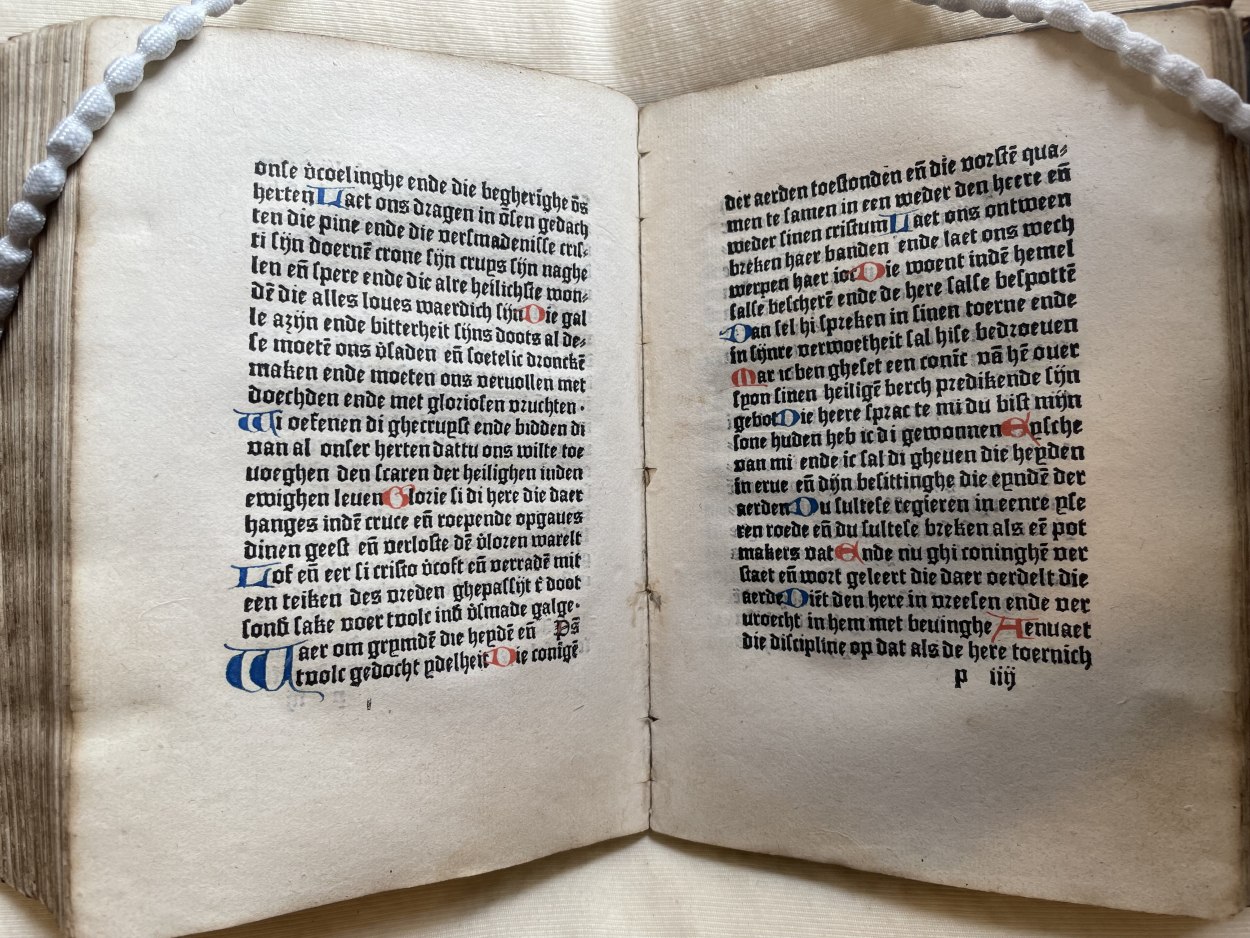 onse v̄coelinghe ende die begherīghe ōs
herten̄ Laet ons dragen in ōsen gedach
ten die pine ende die versmadenisse cris⸗
ti sijn doernē crone sijn cruys sijn naghe
len en̄ spere ende die alre heilichste won⸗
dē die alles loues waerdich sijn Die gal
le azijn ende bitterheit sijns doots al de⸗
se moetē ons v̄saden en̄ soetelic dronckē
maken ende moeten ons veruollen met
doechden ende met gloriosen vruchten·
Wi oefenen di ghecruyst ende bidden di
van al onser herten dattu ons wilte toe
uoeghen den scaren der heilighen inden
ewighen leuen Glorie si di here die daer
hanges indē cruce en̄ roepende opgaues
dinen geest en̄ verloste dē v̄loren warelt
Lof en̄ eer si cristo v̄coft en̄ verradē mit
een teiken des vreden ghepassijt t̄ doot
sond̄ sake voer tvolc ind̄ v̄smade galge·
Waer om grymdē die heydē en̄ Ps̄
tvolc gedocht ydelheit Die conīgē
der aerden toestonden en̄ die vorstē qua⸗
men te samen in een weder den heere en̄
weder sinen cristum Laet ons ontween
breken haer banden ende laet ons wech
werpen haer ioc Die woent indē hemel
salse bescherē ende de here salse bespottē
Dan sel hi spreken in sinen toerne ende
in sijnre verwoetheit sal hise bedroeuen
Mar ic ben gheset een conīc vā hē ouer
syon sinen heiligē berch predikende sijn
gebot Die heere sprac te mi du bist mijn
sone huden heb ic di gewonnen Eysche
van mi ende ic sal di gheuen die heyden
in erue en̄ dijn besittinghe die eynden̄ der
aerden Du sultese regieren in eenre yse
ren roede en̄ du sultese breken als eē pot
makers vat Ende nu ghi coninghē ver
staet en̄ wort geleert die daer oerdelt die
aerde Diēt den here in vreesen ende ver
uroecht in hem met beuinghe Aenuaet
die discipline op dat als de here toernich
p iiij